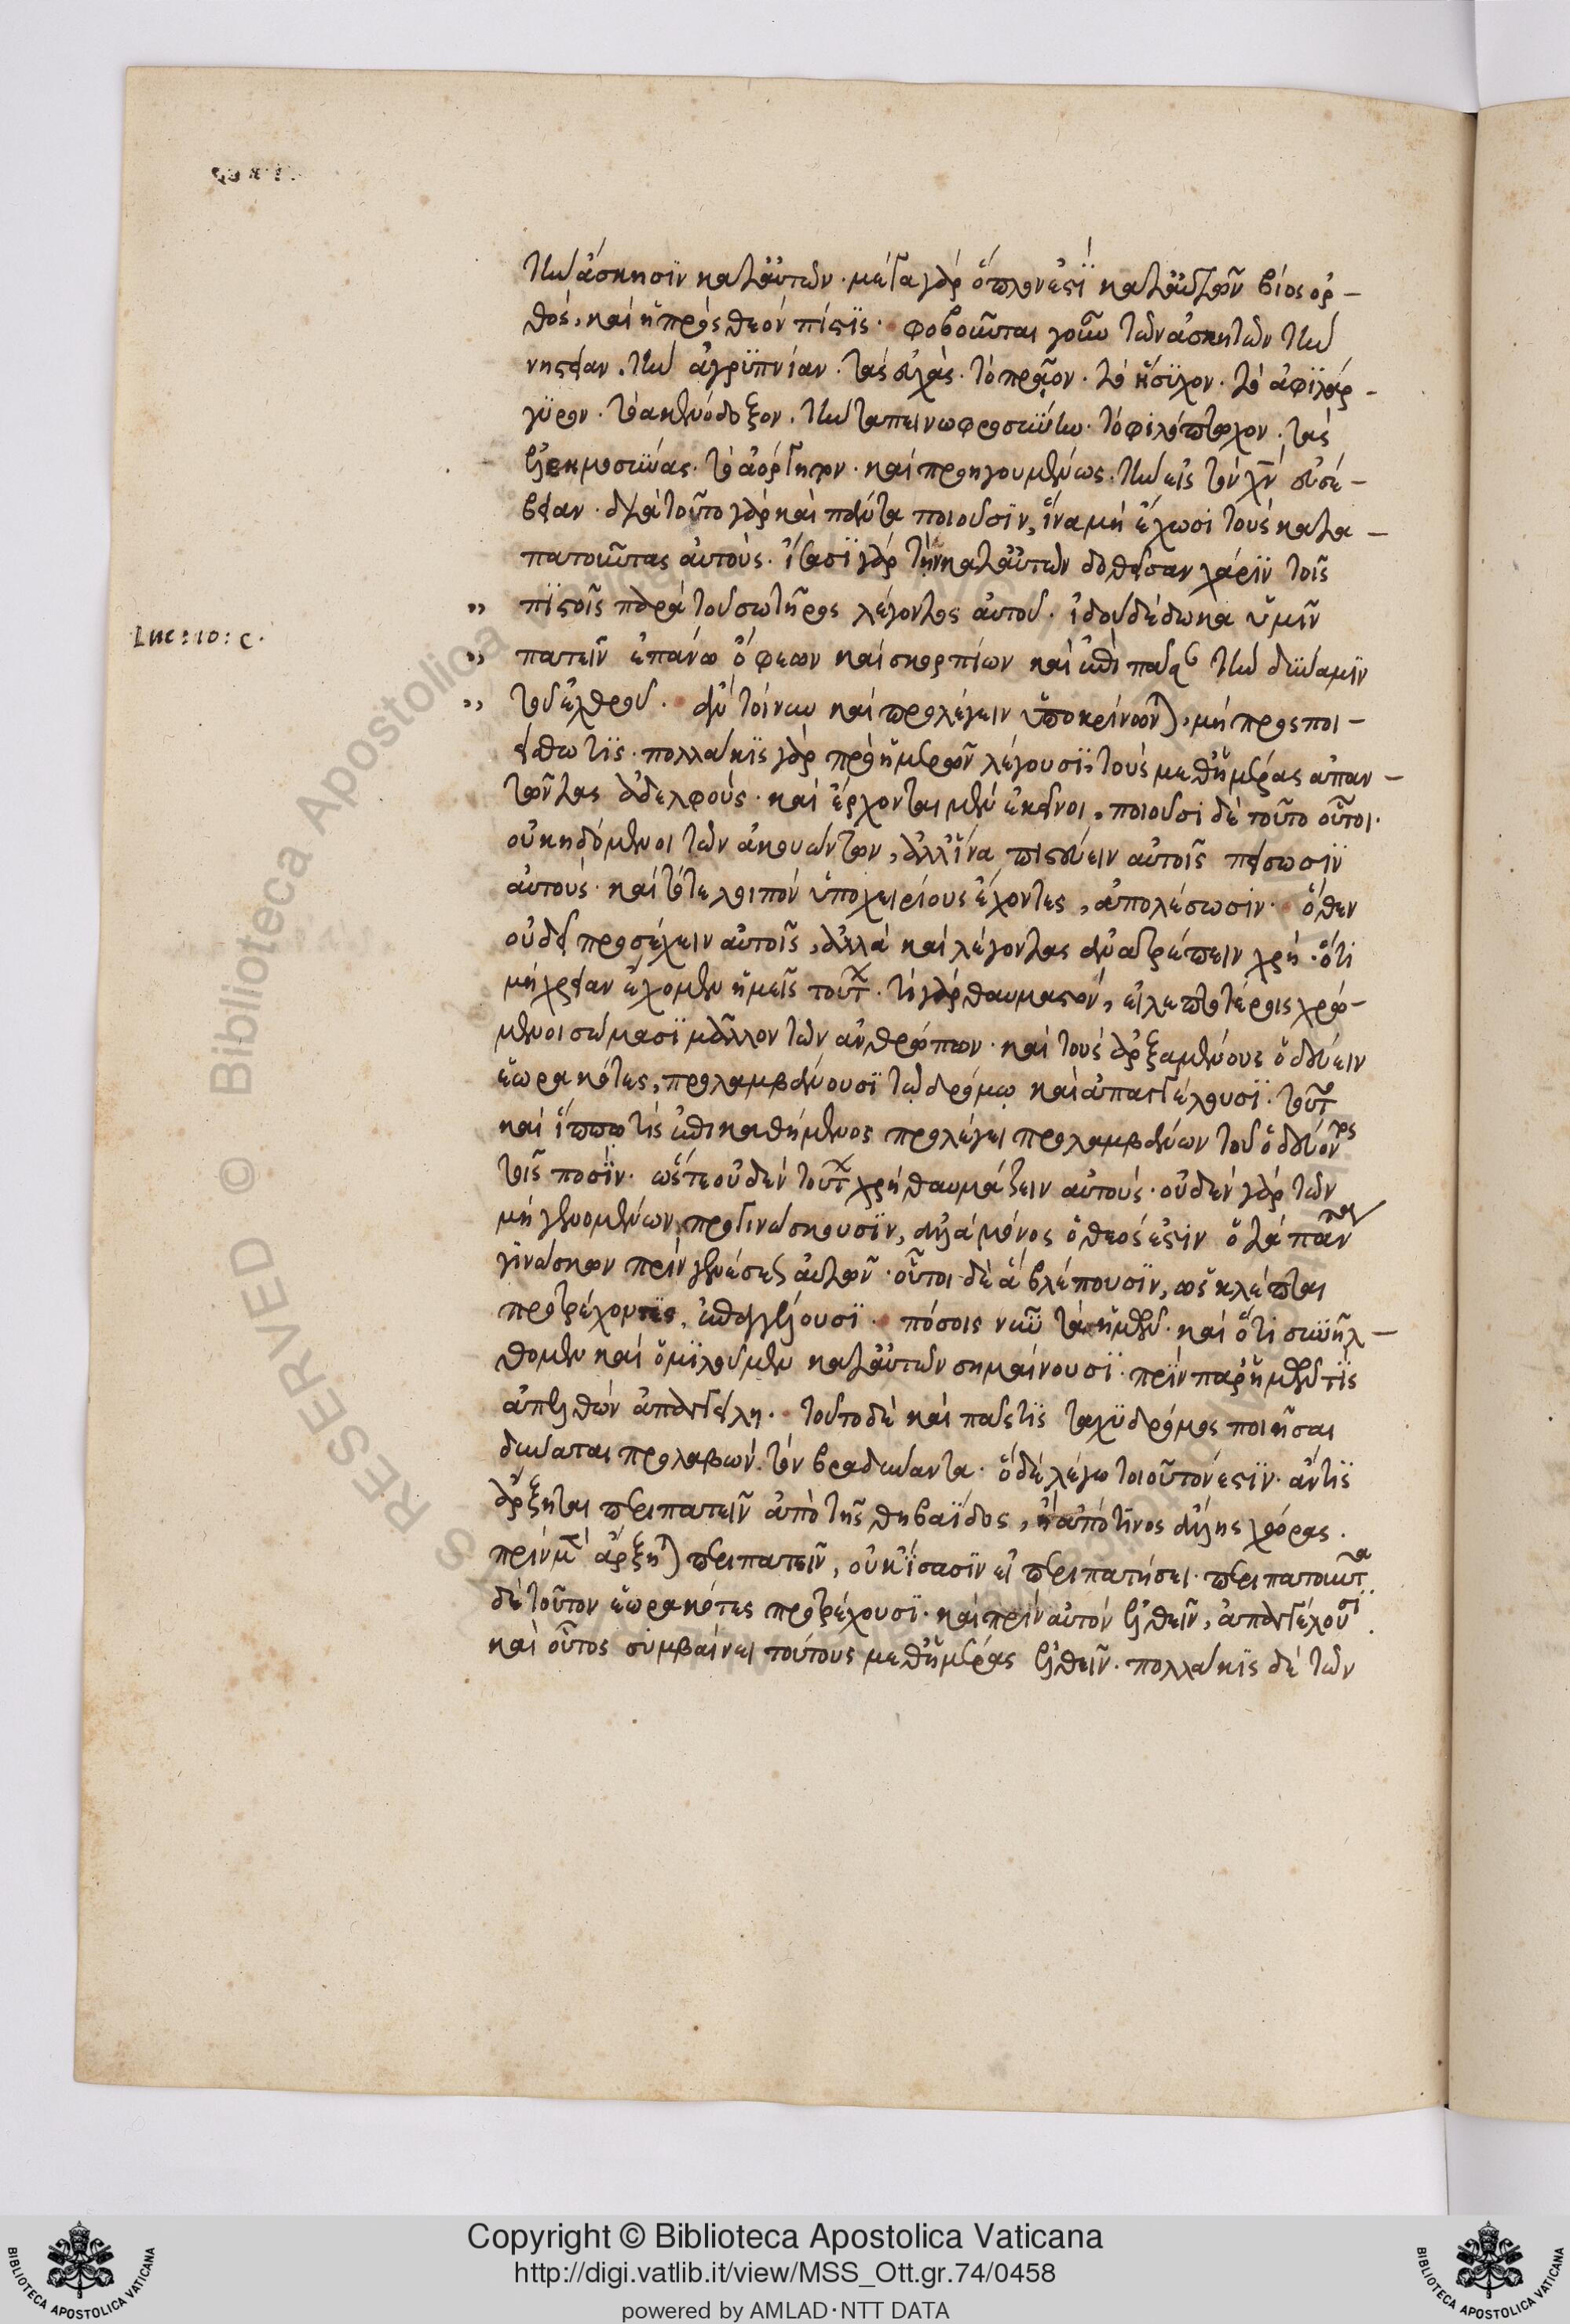 τὴν ἄσκησϊν κατ' αὐτῶν · μέγα γὰρ ὅπλον ἐστὶ κατ' αὐτῶν βίος ὀρ-
θός, καὶ ἡ πρὸς θεὸν πίστϊς · φοβοῦνται γοῦν τῶν ἀσκητῶν τὴν
νηστείαν · τὴν ἀγρϋπνίαν · τὰς εὐχὰς · τὸ πρᾶον · τὸ ἥσϋχον · τὸ ἀφϊλάρ-
γϋρον · τὸ ἀκενόδοξον · τὴν ταπεινωφροσύνην · τὸ φιλόπτωχον · τὰς
ἐλεημοσύνας · τὸ ἀόργητον · καὶ προηγουμένως · τὴν εἰς τὸν χν εὐσέ-
βειαν · διὰ τοῦτο γὰρ καὶ πάντα ποιοῦσϊν, ἵνα μὴ ἔχωσι τοὺς κατα-
πατοῦντας αὐτούς · ἴσασϊ γὰρ τὴν κατ' αὐτῶν δοθεῖσαν χάρϊν τοῖς
Luc: 10: c.
" πϊστοῖς παρὰ τοῦ σωτῆρος λέγοντος αὐτοῦ · ἰδοὺ δέδωκα ὑμῖν
" πατεῖν ἐπάνω ὄφεων καὶ σκορπίων καὶ ἐπὶ πᾶσαν τὴν δύναμϊν
" τοῦ ἐχθροῦ · ἂν τοίνυν καὶ προλέγειν ὑποκρίνωνται, μὴ προσποι-
είσθω τϊς · πολλάκϊς γὰρ πρὸ ἡμερῶν λέγουσϊ, τοὺς μεθ' ἡμέρας ἀπαν-
τῶντας ἀδελφούς · καὶ ἔρχονται μὲν ἐκεῖνοι, ποιοῦσι δὲ τοῦτο οὗτοι ·
οὐ κηδόμενοι τῶν ἀκουόντων, ἀλλ' ἵνα πιστεύειν αὐτοῖς πείσωσϊν
αὐτούς · καὶ τότε λοιπὸν ὑποχειρίους ἔχοντες, ἀπολέσωσιν · ὅθεν
οὐ δεῖ προσέχειν αὐτοῖς, ἀλλὰ καὶ λέγοντας ἀνατρέπειν χρή · ὅτι
μὴ χρείαν ἔχομεν ἡμεῖς τούτων · τί γὰρ θαυμαστόν, εἰ λεπτοτέροις χρώ-
μενοι σώμασϊ μᾶλλον τῶν ἀνθρώπων · καὶ τοὺς ἀρξαμένους ὁδεύειν
ἑωρακότες, προλαμβάνουσϊ τῷ δρόμῳ καὶ ἀπαγγέλουσϊ · τοῦτο
καὶ ἵππῳ τὶς ἐπικαθήμενος προλέγει προλαμβάνων τοῦ ὁδεύοντος
τοῖς ποσϊν · ὥστε οὐδὲν τούτων χρὴ θαυμάζειν αὐτούς · οὐδὲν γὰρ τῶν
μὴ γενομένων προγινώσκουσϊν, ἀλλὰ μόνος ὁ θεός ἐστιν ὁ τὰ πάντα
γινώσκων πρὶν γενέσεως αὐτῶν · οὗτοι δὲ ἃ βλέπουσϊν, ὡς κλέπται
προτρέχοντες, ἀπαγγέλλουσϊ · πόσοις νῦν τὰ ἡμῶν · καὶ ὅτι συνήλ-
θομεν καὶ ὁμϊλοῦμεν κατ' αὐτῶν σημαίνουσϊ · πρϊν παρ' ἡμῶν τϊς
ἀπελθὼν ἀπαγγείλῃ · τοῦτο δὲ καὶ παῖς τϊς ταχϋδρόμος ποιῆσαι
δύναται προλαβὼν τὸν βραδύναντα · ὃ δὲ λέγω τοιοῦτόν ἐστϊν · ἄν τϊς
ἄρξηται περιπατεῖν ἀπὸ τῆς θηβαΐδος, ἢ ἀπό τινος ἄλλης χώρας ·
πρὶν μὲν ἄρξηται περιπατεῖν, οὐκ ἴσασϊν εἰ περιπατήσει · περιπατοῦντα
δὲ τοῦτον ἑωρακότες προτρέχουσϊ · καὶ πρὶν αὐτὸν ἐλθεῖν, ἀπαγγέλουσϊ ·
καὶ οὗτος συμβαίνει τούτους μεθ' ἡμέρας ἐλθεῖν · πολλάκϊς δὲ τῶν
Copyright © Biblioteca Apostolica Vaticana
http://digi.vatlib.it/view/MSS_Ott.gr.74/0458
powered by AMLAD·NTT DATA
BIBLIOTECA APOSTOLICA VATICANA
BIBLIOTECA APOSTOLICA VATICANA